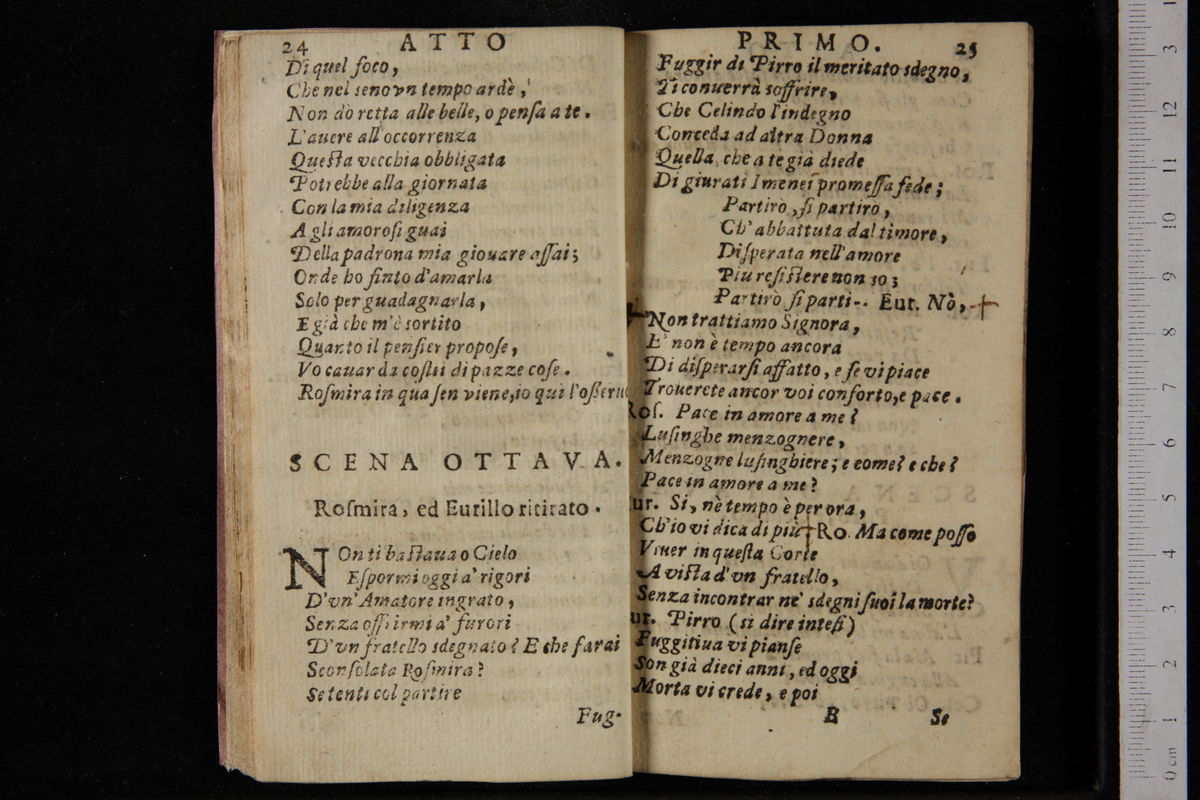 24 ATTO
Di quel foco,
Che nel seno vn tempo ardè,
Non dò retta alle belle, o penſa a te.
L'auere all'occorrenza
Queſta vecchia obbligata
Potrebbe alla giornata
Con la mia diligenza
A gli amoroſi guai
Della padrona mia giouare aſſai;
Onde ho finto d'amarla
Solo per guadagnarla,
E già che m'è sortito
Quanto il penſier propoſe,
Vo cauar da coſtui di pazze coſe.
Roſmira in qua ſen viene, io qui l'oſſeru
SCENA OTTAVA.
Roſmira, ed Eurillo ritirato.
NOn ti baſtaua o Cielo
Eſpormi oggi a' rigori
D'vn' Amatore ingrato,
Senza offrirmi a' furori
D'vn fratello sdegnato? E che farai
Sconſolata Roſmira?
Se tenti col partire
Fug-
PRIMO. 25
Fuggir di Pirro il meritato sdegno,
Ti conuerrà soffrire,
Che Celindo l'indegno
Conceda ad altra Donna
Quella, che a te già diede
Di giurati Imenei promeſſa fede;
Partirò, ſi partirò,
Ch' abbattuta dal timore,
Diſperata nell'amore
Più reſiſtere non so;
Partirò ſi parti-- Eur. Nò,
Non trattiamo Signora,
E' non è tempo ancora
Di diſperarſi affatto, e ſe vi piace
Trouerete ancor voi conforto, e pace.
Roſ. Pace in amore a me?
Luſinghe menzognere,
Menzogne luſinghiere; e come? e che?
Pace in amore a me?
ur. Si, nè tempo è per ora,
Ch'io vi dica di più Ro. Ma come poſſo
Viuer in queſta Corte
A viſta d'vn fratello,
Senza incontrar ne' sdegni ſuoi la morte?
ur. Pirro (si dire inteſi)
Fuggitiua vi pianſe
Son già dieci anni, ed oggi
Morta vi crede, e poi
B Se
0 cm 1 2 3 4 5 6 7 8 9 10 11 12 3